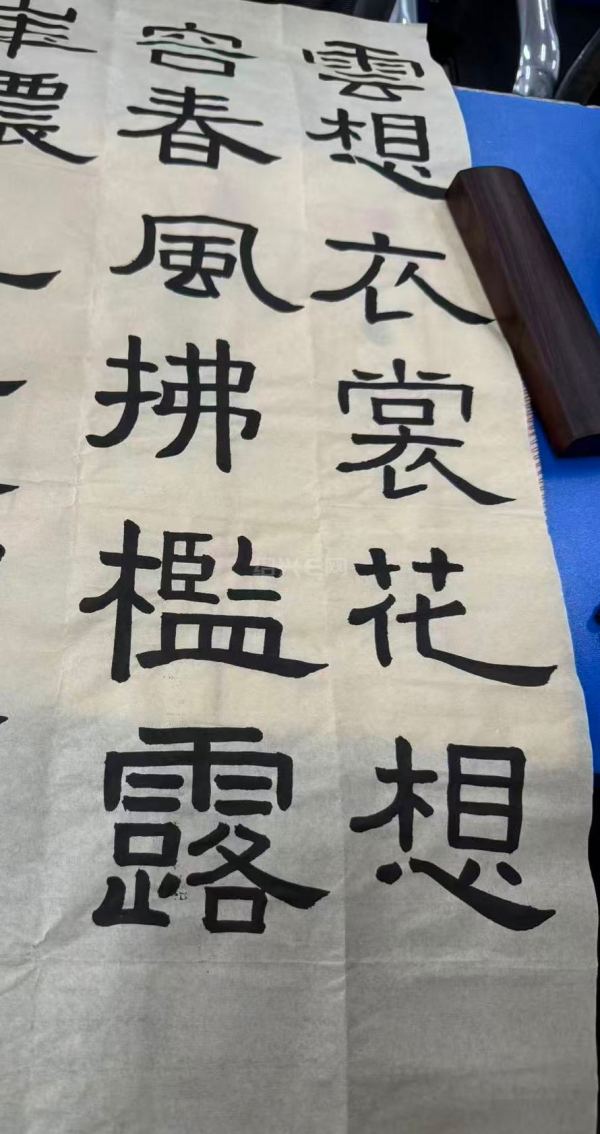 雲想衣裳花想
容春風拂檻露
華濃